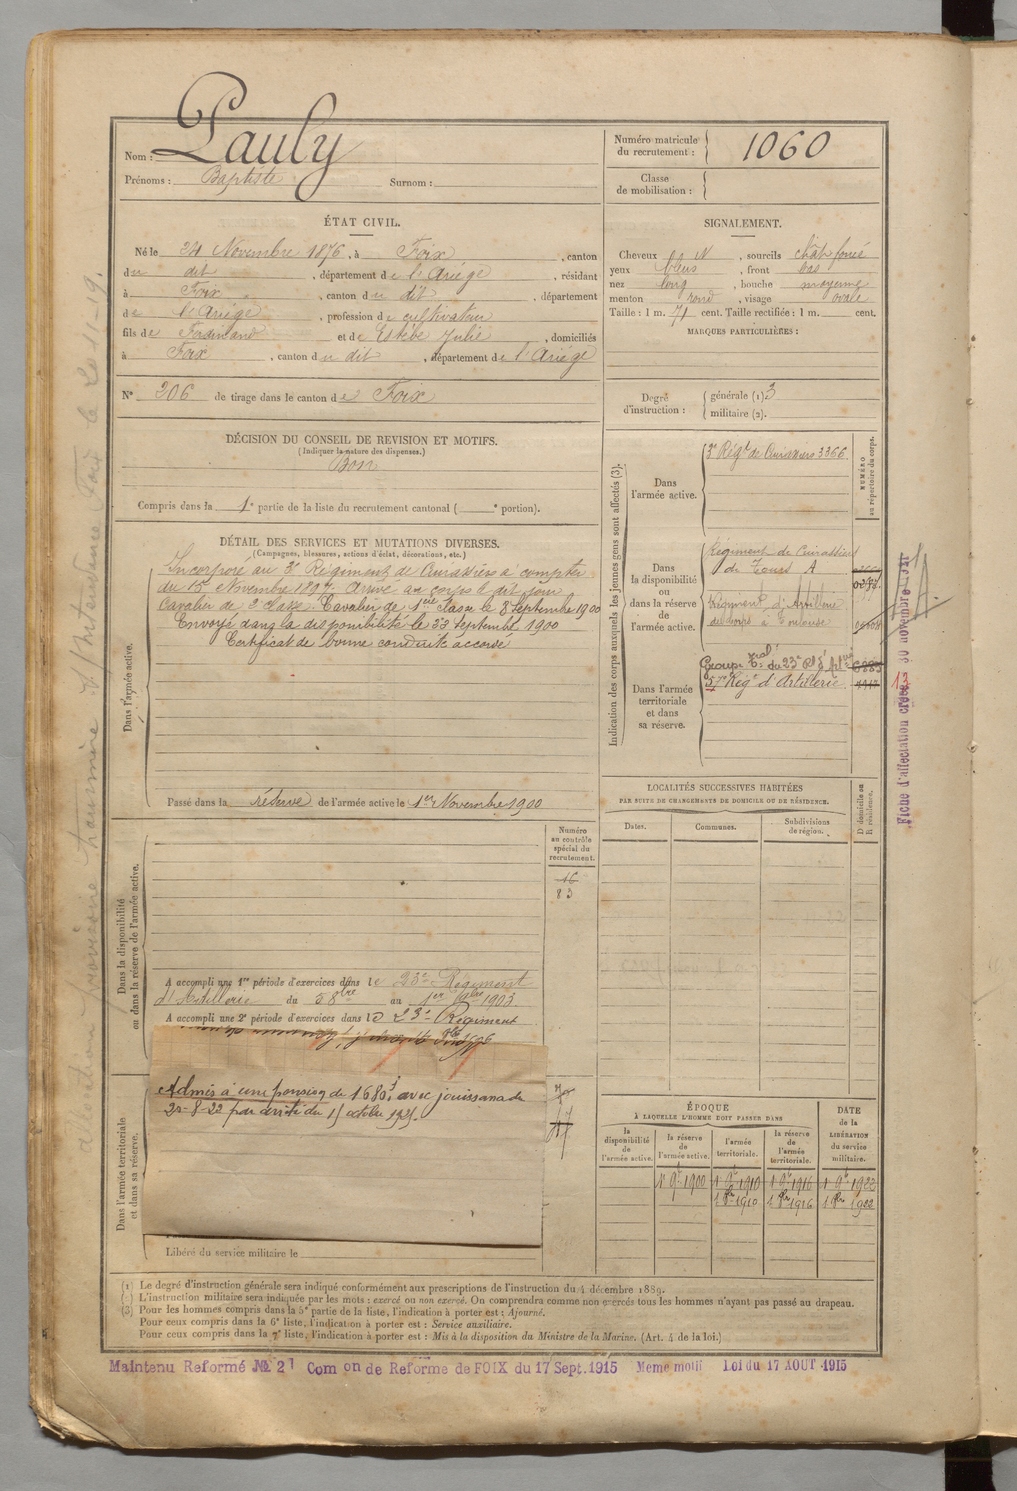 Nom : Pauly
Prénoms : Baptiste Surnom :
Numéro matricule du recrutement : 1060
Classe de mobilisation :
ÉTAT CIVIL.
Né le 24 Novembre 1876, à Foix, canton
du dit, département de l'Ariège, résidant
à Foix, canton du dit, département
de l'Ariège, profession de cultivateur
fils de Ferdinand et de Estèbe Julie, domiciliés
à Foix, canton du dit, département de l'Ariége
N° 206 de tirage dans le canton de Foix
SIGNALEMENT.
Cheveux N, sourcils chât foncé
yeux bleus, front bas
nez long, bouche moyenne
menton rond, visage ovale
Taille : 1 m. 71 cent. Taille rectifiée : 1 m. cent.
MARQUES PARTICULIÈRES :
Degré d'instruction : générale (1) 3
militaire (2).
DÉCISION DU CONSEIL DE REVISION ET MOTIFS.
(Indiquer la nature des dispenses.)
Bon
Compris dans la 1e partie de la liste du recrutement cantonal ( e portion).
DÉTAIL DES SERVICES ET MUTATIONS DIVERSES.
(Campagnes, blessures, actions d'éclat, décorations, etc.)
Dans l'armée active.
Incorporé au 3e Régiment de Cuirassiers à compter
du 15 Novembre 1897. Arrivé au corps le dit jour
Cavalier de 2e classe. Cavalier de 1ère classe le 8 Septembre 1900
Envoyé dans la disponibilité le 22 Septembre 1900
Certificat de bonne conduite accordé
Passé dans la réserve de l'armée active le 1er Novembre 1900
Indication des corps auxquels les jeunes gens sont affectés (3).
NUMÉRO au répertoire du corps.
Dans l'armée active.
3e Régt de Cuirassiers 3366
Dans la disponibilité ou dans la réserve de l'armée active.
Régiment de Cuirassiers
de Tours A
Régiment d'Artillerie
de corps à Toulouse
Dans l'armée territoriale et dans sa réserve.
Groupe Trial du 23e Rt d'Artie
57e Régt d'Artillerie
Fiche d'affectation créée 30 novembre 13
LOCALITÉS SUCCESSIVES HABITÉES
PAR SUITE DE CHANGEMENTS DE DOMICILE OU DE RÉSIDENCE.
Dates. Communes. Subdivisions de région. D domicile ou R résidence.
Numéro au contrôle spécial du recrutement.
16
83
Dans la disponibilité ou dans la réserve de l'armée active.
A accompli une 1re période d'exercices dans le 23e Régiment
d'Artillerie du 5 8bre au 1er 9bre 1903
A accompli une 2e période d'exercices dans le 23e Régiment
Dans l'armée territoriale et dans sa réserve.
Admis à une pension de 1680f, avec jouissance du
par arrêté du 15 octobre
Libéré du service militaire le
ÉPOQUE
À LAQUELLE L'HOMME DOIT PASSER DANS
la disponibilité de l'armée active. la réserve de l'armée active. l'armée territoriale. la réserve de l'armée territoriale.
DATE de la LIBÉRATION du service militaire.
1 9bre 1900 1 9bre 1910 1 9bre 1916 1 9bre 1922
1 8bre 1910 1 8bre 1916 1 8bre 1922
(1) Le degré d'instruction générale sera indiqué conformément aux prescriptions de l'instruction du 4 décembre 1889.
(2) L'instruction militaire sera indiquée par les mots : exercé ou non exercé. On comprendra comme non exercés tous les hommes n'ayant pas passé au drapeau.
(3) Pour les hommes compris dans la 5e partie de la liste, l'indication à porter est : Ajourné.
Pour ceux compris dans la 6e liste, l'indication à porter est : Service auxiliaire.
Pour ceux compris dans la 7e liste, l'indication à porter est : Mis à la disposition du Ministre de la Marine. (Art. 4 de la loi.)
Maintenu Reformé No 2 Comon de Reforme de FOIX du 17 Sept. 1915 Meme motif Loi du 17 AOUT 1915